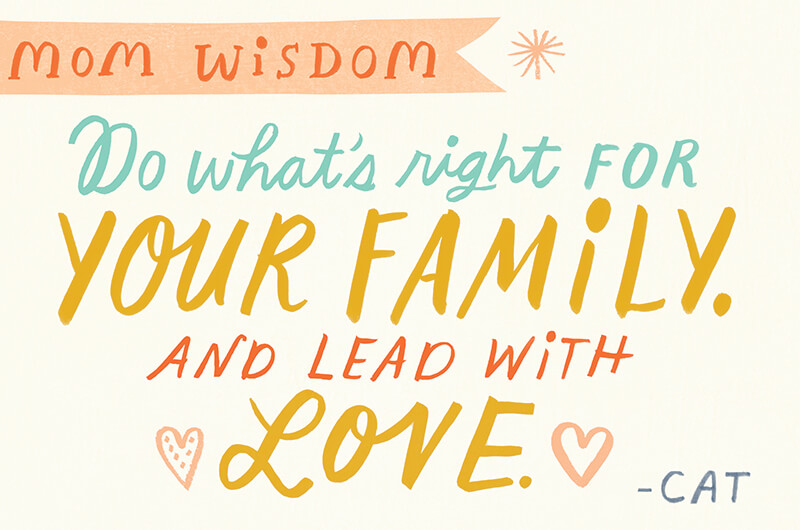 MOM WiSDOM
Do what's right FOR
YOUR FAMiLY.
AND LEAD WiTH
LOVE.
-CAT